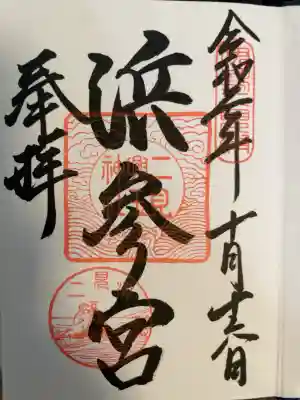 令和二年 十月十六日
浜参宮
奉拝
二見興玉神社